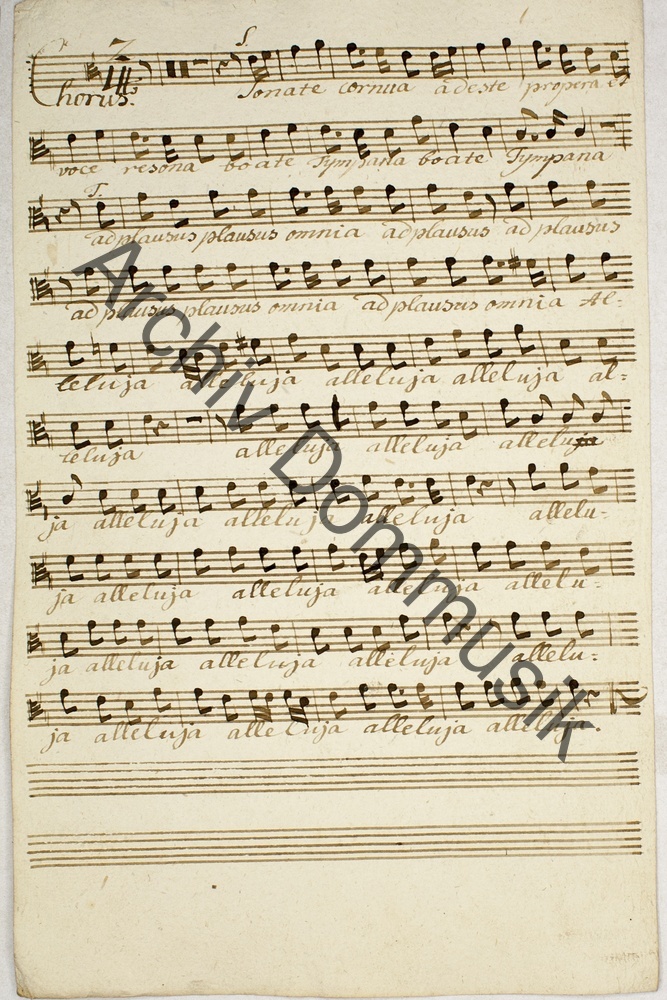 S.
Chorus. Sonate cornua adeste propera et
voce resona boate Tympana boate Tympana
T.
ad plausus plausus omnia ad plausus ad plausus
ad plausus plausus omnia ad plausus omnia Al-
leluja alleluja alleluja alleluja al-
leluja alleluja alleluja alleluja
ja alleluja alleluja alleluja allelu-
ja alleluja alleluja alleluja allelu-
ja alleluja alleluja alleluja allelu-
ja alleluja alleluja alleluja alleluja.
Archiv Dommusik